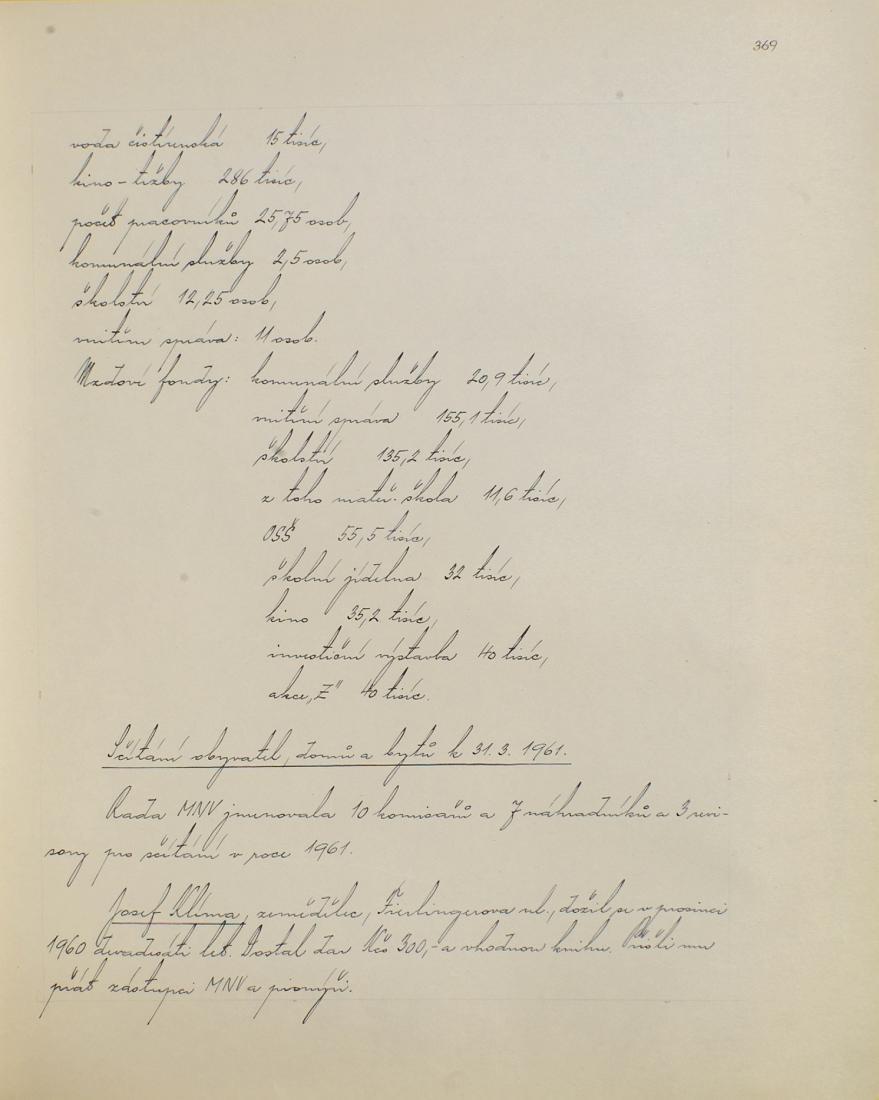 369
voda čistírenská 15 tisíc,
kino - tržby 286 tisíc,
počet pracovníků 25,75 osob,
komunální služby 2,5 osob,
školství 12,25 osob,
vnitřní správa: 11 osob.
Mzdové fondy: komunální služby 20,9 tisíc,
vnitřní správa 155,1 tisíc,
školství 135,2 tisíc,
z toho mateř. škola 11,6 tisíc,
OSŠ 55,5 tisíc,
školní jídelna 32 tisíc,
kino 35,2 tisíc,
investiční výstavba 40 tisíc,
akce „Z" 40 tisíc.
Sčítání obyvatel, domů a bytů k 31.3. 1961.
Rada MNV jmenovala 10 komisařů a 7 náhradníků a 3 revi-
sory pro sčítání v roce 1961.
Josef Klíma, zemědělec, Fierlingerova ul., dožil se v prosinci
1960 devadesáti let. Dostal dar Kčs 300,- a vhodnou knihu. Přišli mu
přát zástupci MNV a pionýři.